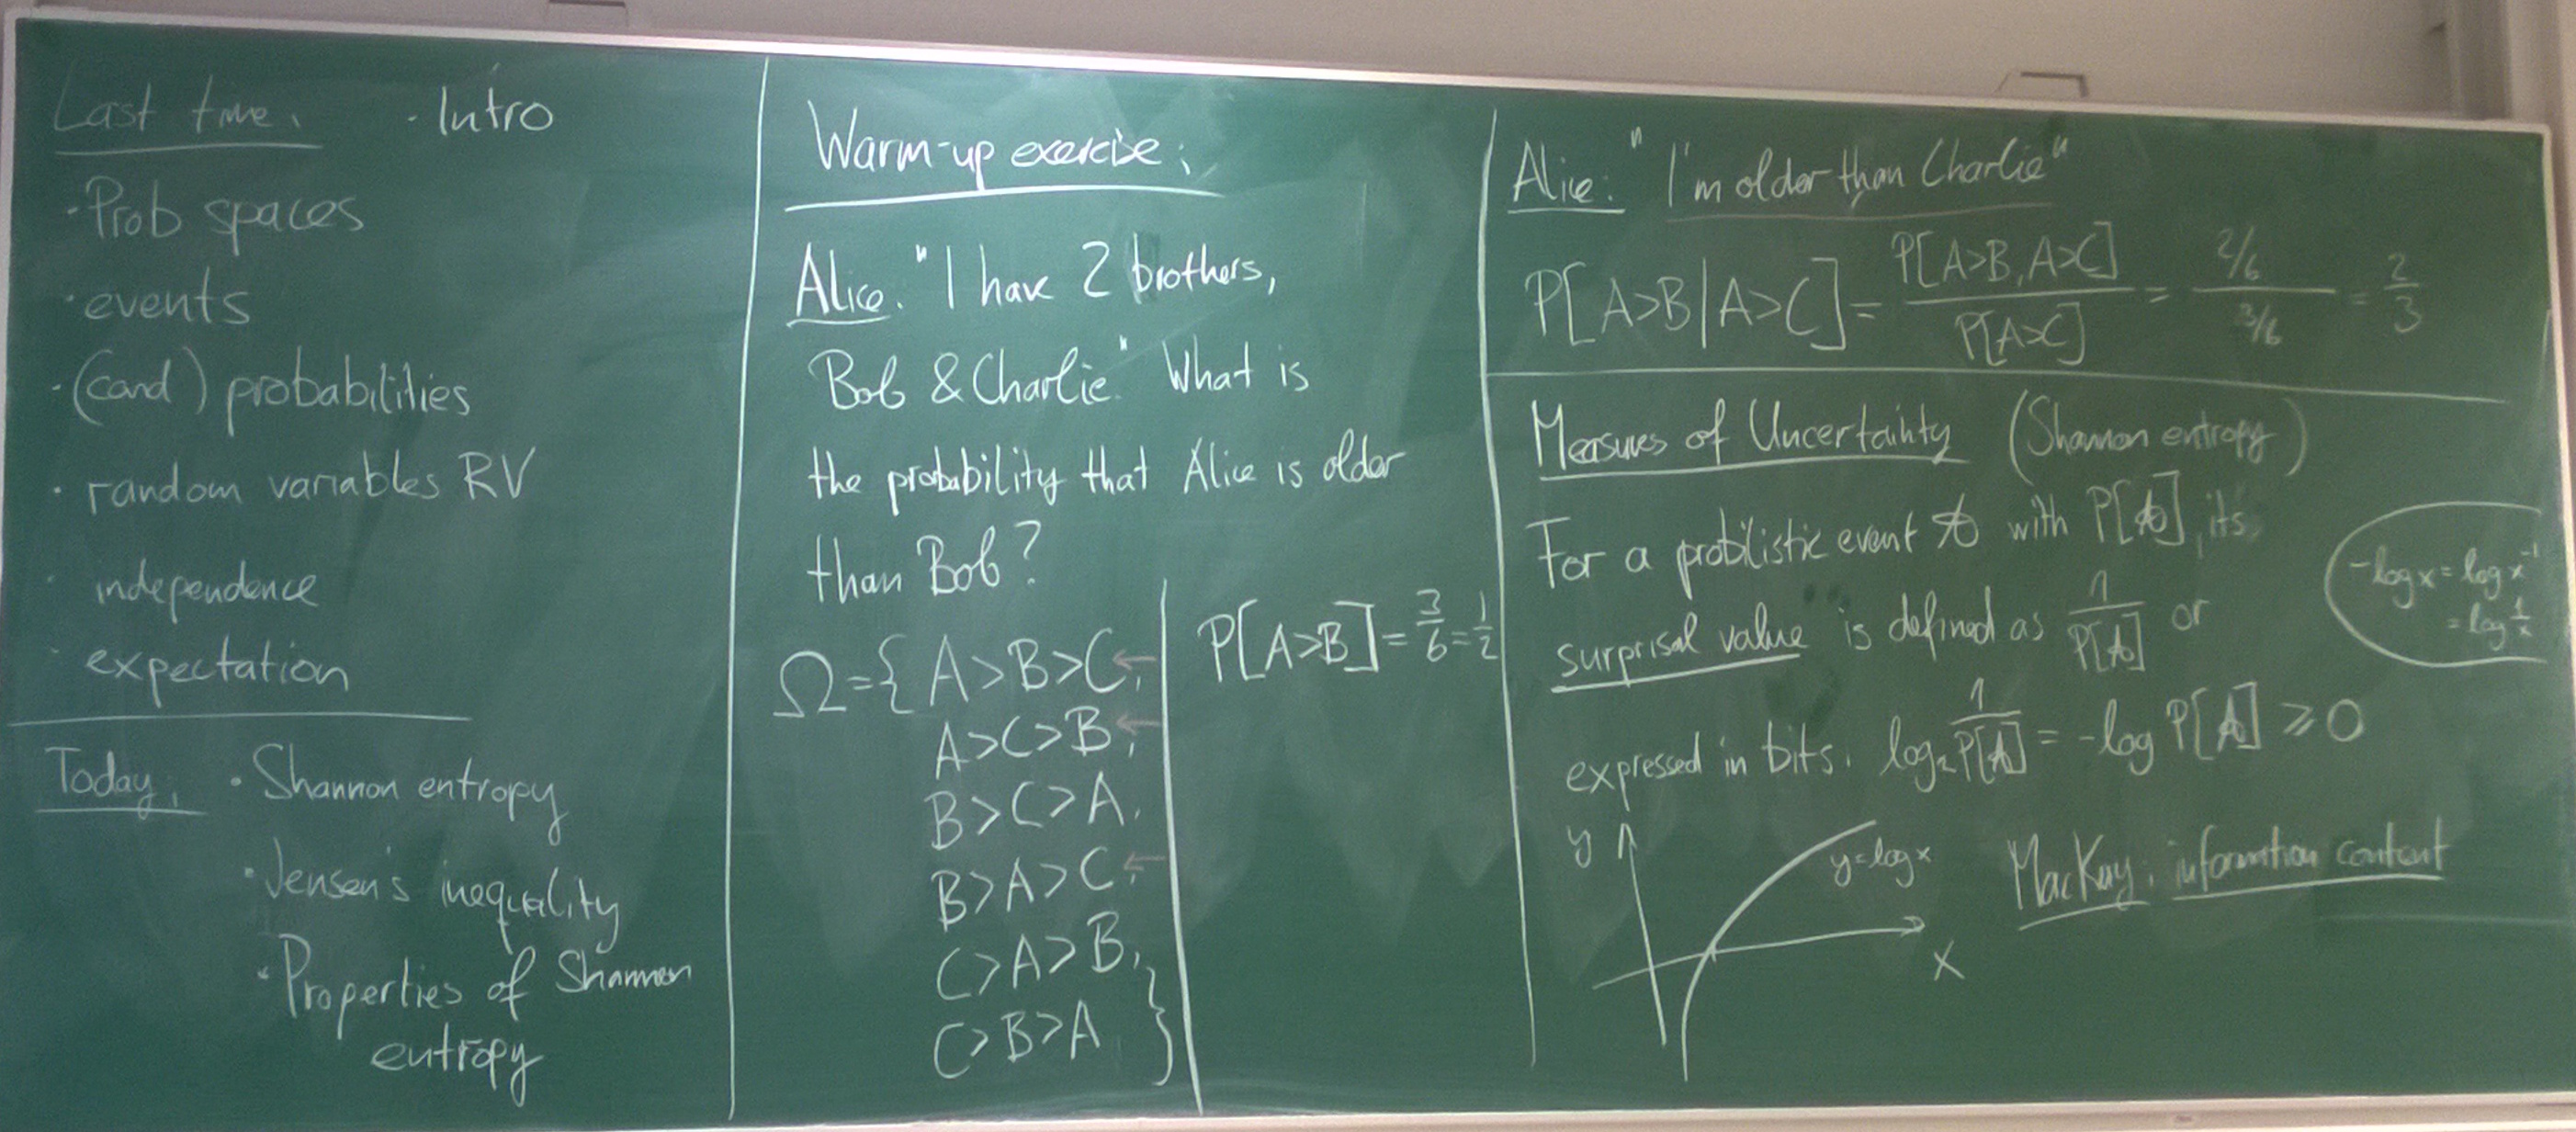 Last time: · Intro
· Prob spaces
· events
· (cond) probabilities
· random variables RV
· independence
· expectation
Today: · Shannon entropy
· Jensen's inequality
· Properties of Shannon
entropy
Warm-up exercise:
Alice: "I have 2 brothers,
Bob & Charlie." What is
the probability that Alice is older
than Bob?
Ω={ A>B>C, ←
A>C>B, ←
B>C>A,
B>A>C, ←
C>A>B,
C>B>A }
P[A>B] = 3/6 = 1/2
Alice: "I'm older than Charlie"
P[A>B|A>C] = P[A>B, A>C] / P[A>C] = 2/6 / 3/6 = 2/3
Measures of Uncertainty (Shannon entropy)
For a probilistic event A with P[A], its
surprisal value is defined as 1/P[A] or
expressed in bits: log₂ 1/P[A] = -log P[A] ≥ 0
-log x = log x⁻¹
= log 1/x
y
y=log x
x
MacKay: information content